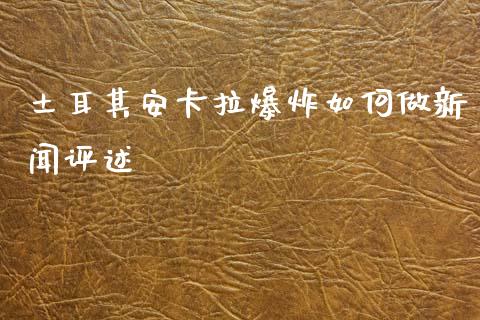 土耳其安卡拉爆炸如何做新
闻评述